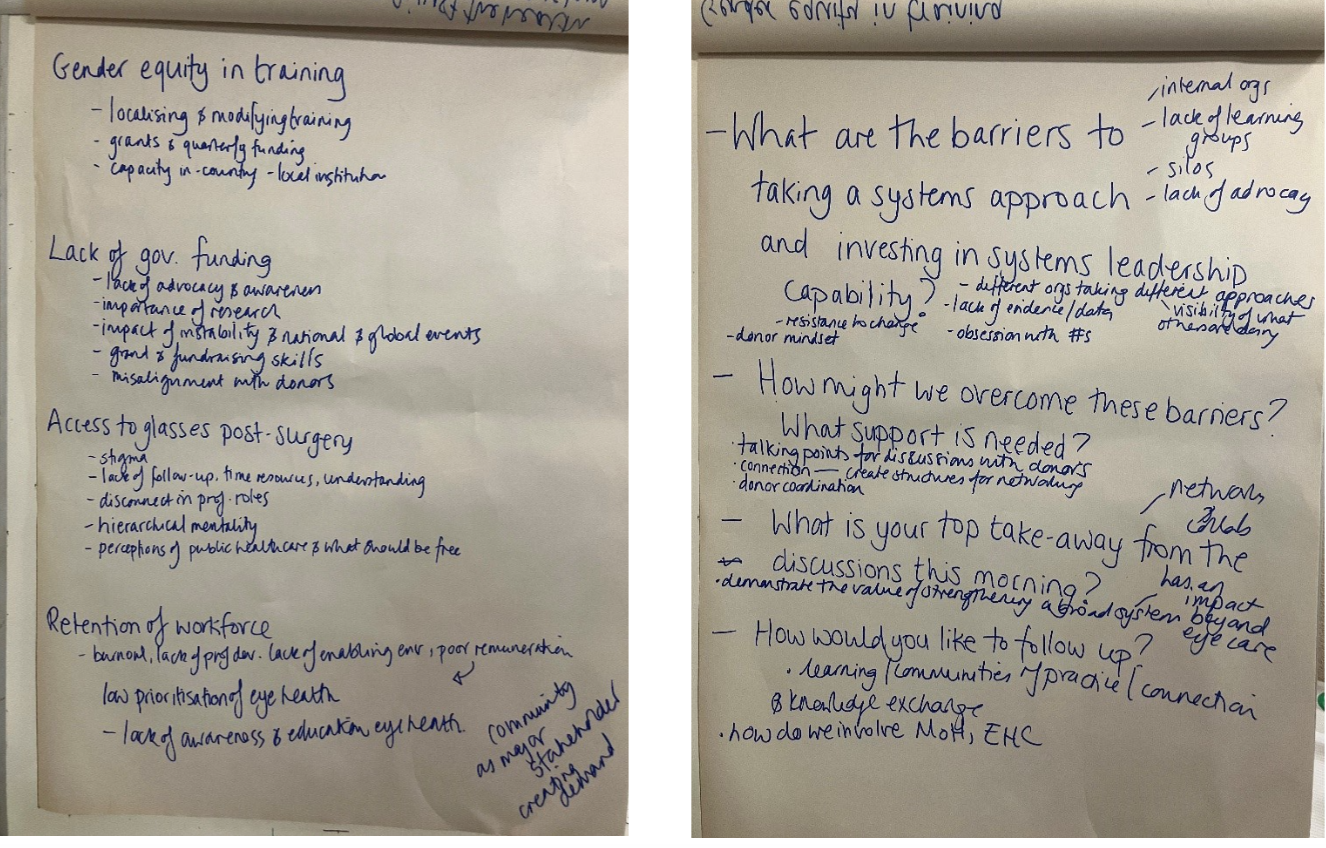 Gender equity in training
- localising & modifying training
- grants & quarterly funding
- capacity in-country - local institution
Lack of gov. funding
- lack of advocacy & awareness
- importance of research
- impact of instability & national & global events
- grant & fundraising skills
- misalignment with donors
Access to glasses post-surgery
- stigma
- lack of follow-up, time resources, understanding
- disconnect in prof. roles
- hierarchical mentality
- perceptions of public healthcare & what should be free
Retention of workforce
- burnout, lack of prof dev. lack of enabling env, poor remuneration
low prioritisation of eye health
- lack of awareness & education eye health.
community
as major
stakeholder
creating
demand
- What are the barriers to
taking a systems approach
and investing in systems leadership
capability?
- internal orgs
- lack of learning
groups
- silos
- lack of advocacy
- different orgs taking different approaches
- lack of evidence/data
- visibility of what
others are doing
- resistance to change
- obsession with #s
- donor mindset
- How might we overcome these barriers?
What support is needed?
· talking points for discussions with donors
· connection — create structures for networking
· donor coordination
- What is your top take-away from the
discussions this morning?
- networks
& collab
· demonstrate the value of strengthening a broad system
- has an
impact
beyond
eye care
- How would you like to follow up?
· learning/communities of practice/connection
& knowledge exchange
· how do we involve MoH, EHC